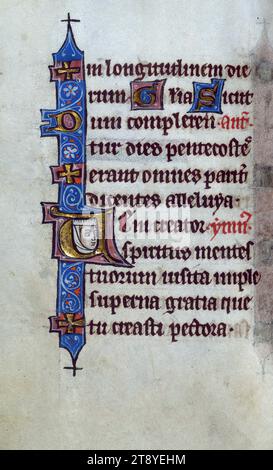 In longitudinem die
rum Glia Sicut
Dum complerent. ant.
tur dies pentecoste
erant omnes parit
dicentes alleluya.
Veni creator. ymn
spiritus mentes
tuorum visita imple
superna gratia que
tu creasti pectora.
alamy - 2T8YEHM